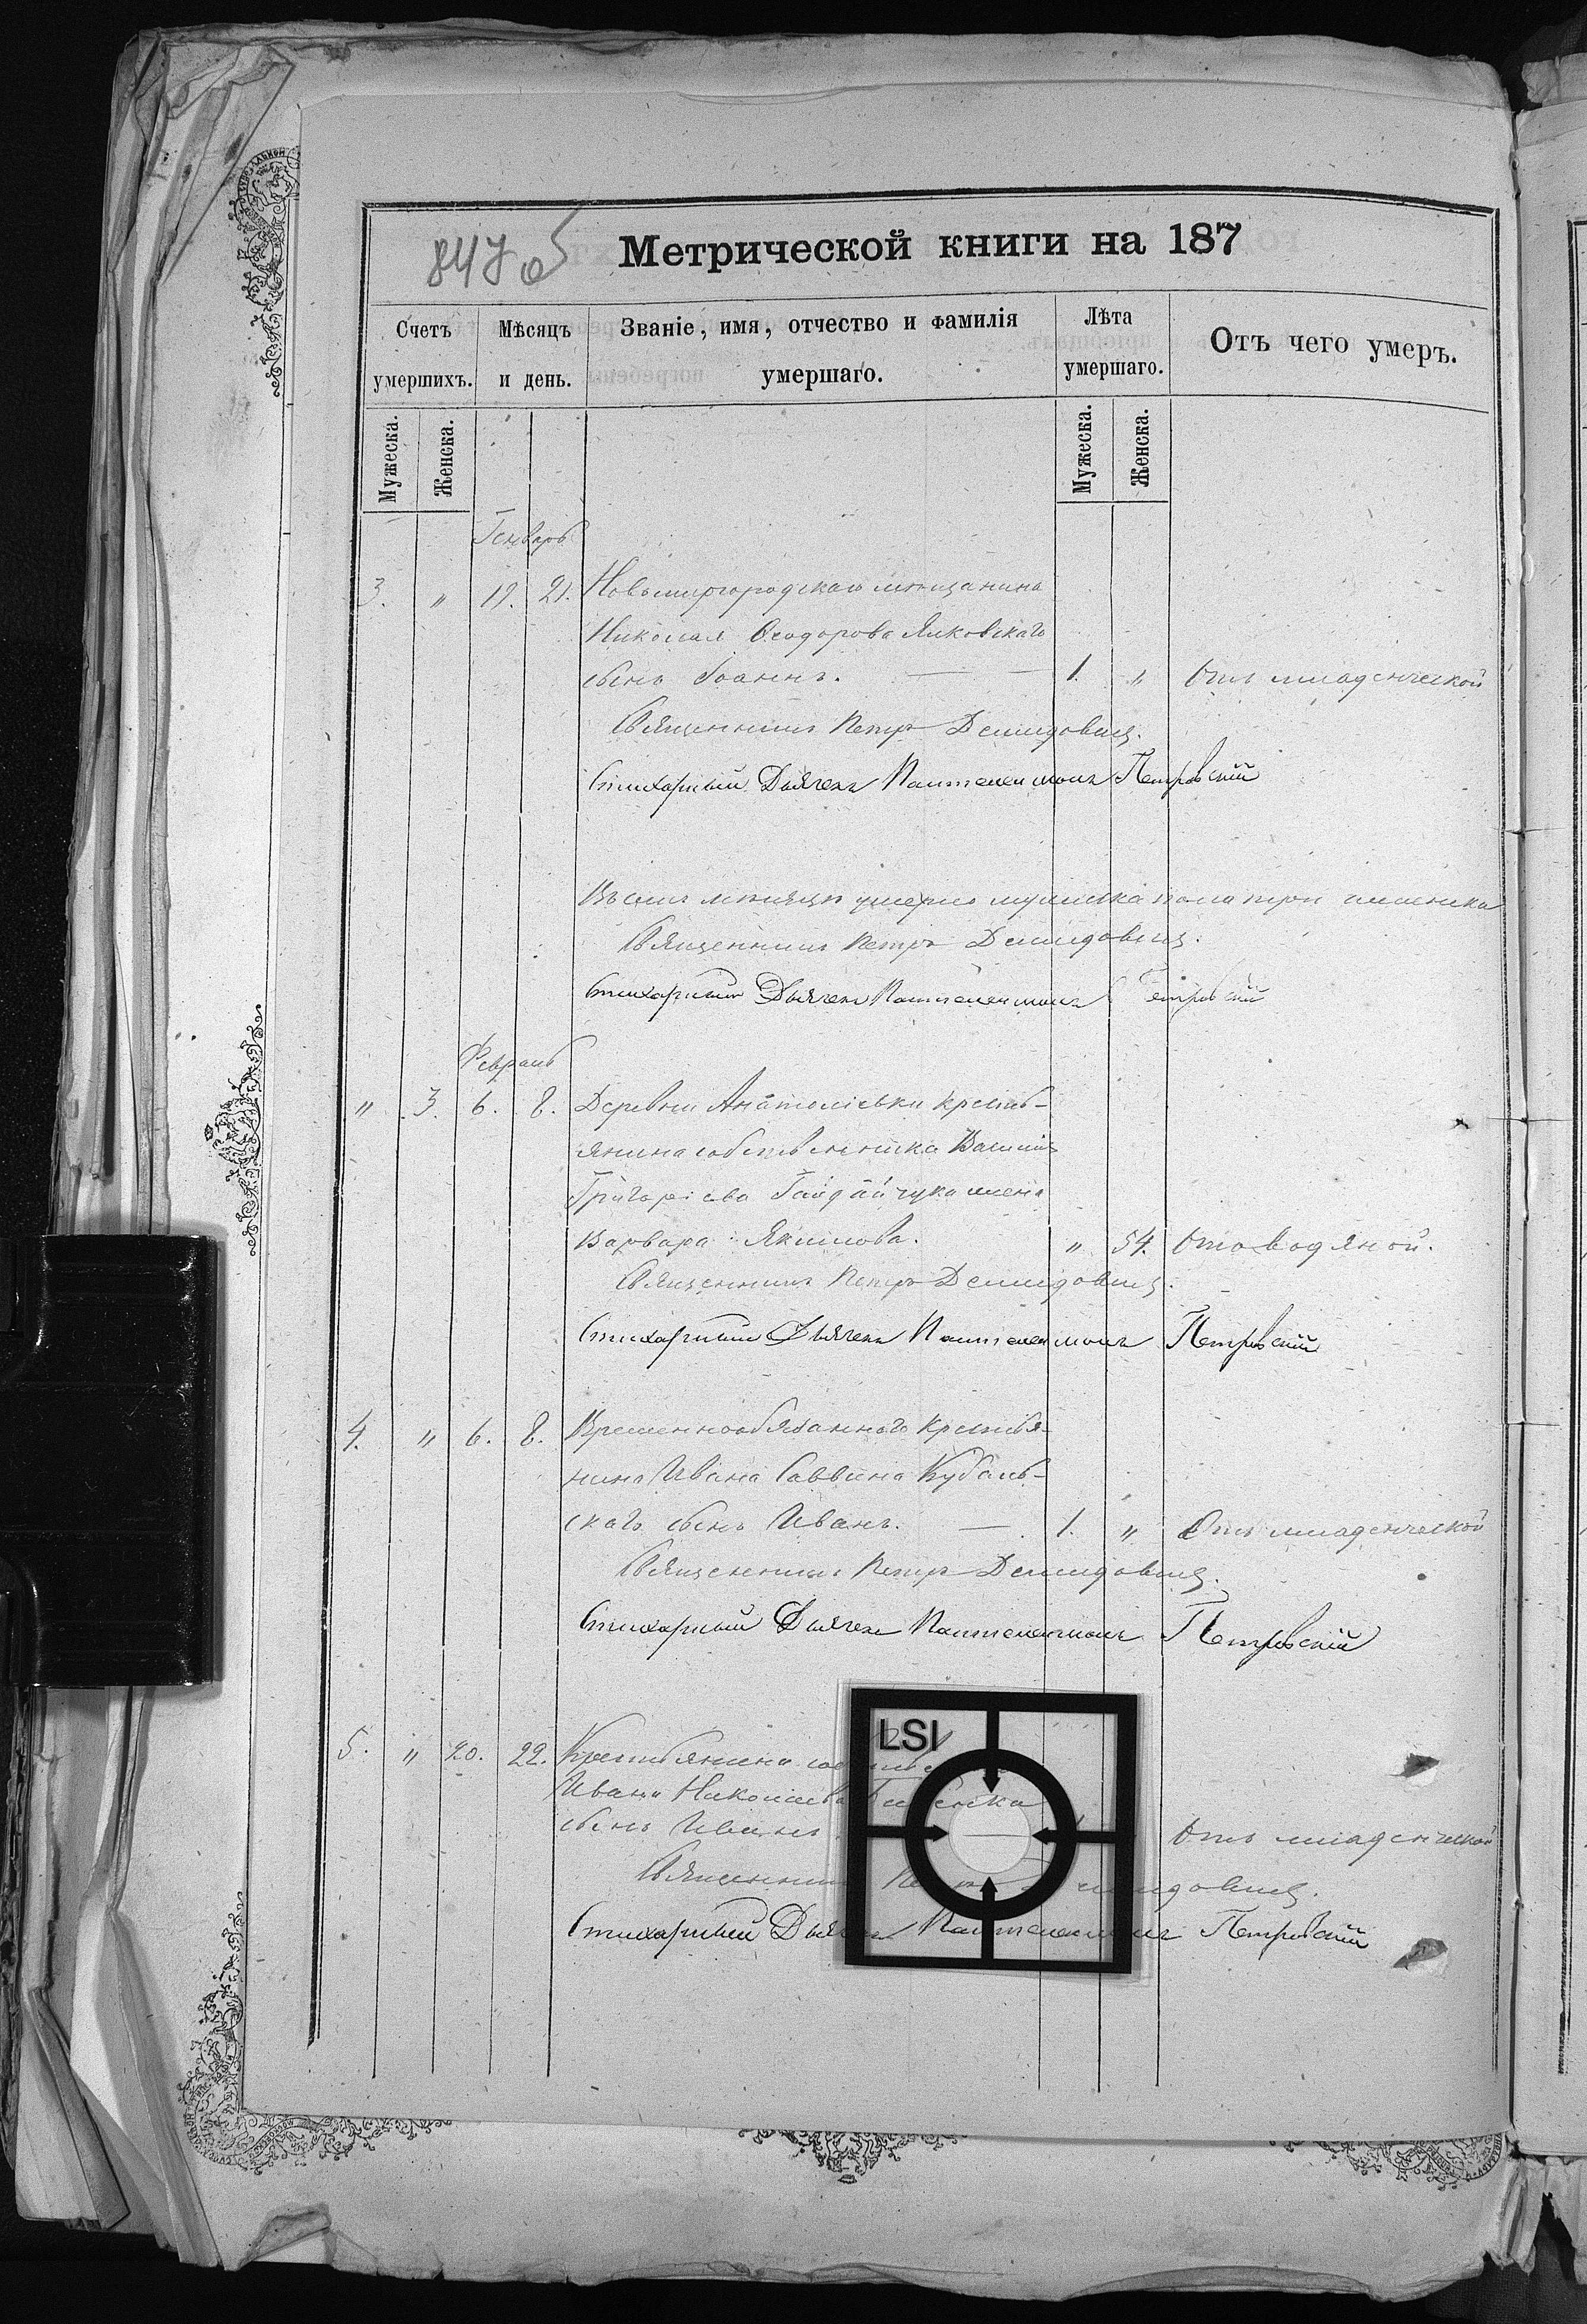 847 об
Метрической книги на 187
Счетъ умершихъ.
Мѣсяцъ и день.
Званіе, имя, отчество и фамилія умершаго.
Лѣта умершаго.
Отъ чего умеръ.
Мужеска.
Женска.
Мужеска.
Женска.
Генварь
3. " 19. 21. Новомиргородскаго мѣщанина
Николая Ѳеодорова Янковскаго
сынъ Іоаннъ. — — 1. " Отъ младенческой
Священникъ Петръ Демидовичъ.
Стихарный Дьячекъ Пантелеимонъ Петровскій
Въ семъ мѣсяцѣ умерло мужеска пола три человѣка
Священникъ Петръ Демидовичъ.
Стихарный Дьячекъ Пантелеимонъ Петровскій
Февраль
" 3. 6. 8. Деревни Анатоліевки кресть-
янина собственника Василія
Григоріева Гайдайчука жена
Варвара Якимова. " 54. Отъ водяной.
Священникъ Петръ Демидовичъ.
Стихарный Дьячекъ Пантелеимонъ Петровскій
4. " 6. 8. Временнообязаннаго крестья-
нина Ивана Саввина Кубаль-
скаго сынъ Иванъ. — 1. " Отъ младенческой
Священникъ Петръ Демидовичъ.
Стихарный Дьячекъ Пантелеимонъ Петровскій
5. " 20. 22. Крестьянина
Ивана Николаева
сынъ Иванъ Отъ младенческой
Священникъ Петръ Демидовичъ.
Стихарный Дьячекъ Пантелеимонъ Петровскій
LSI